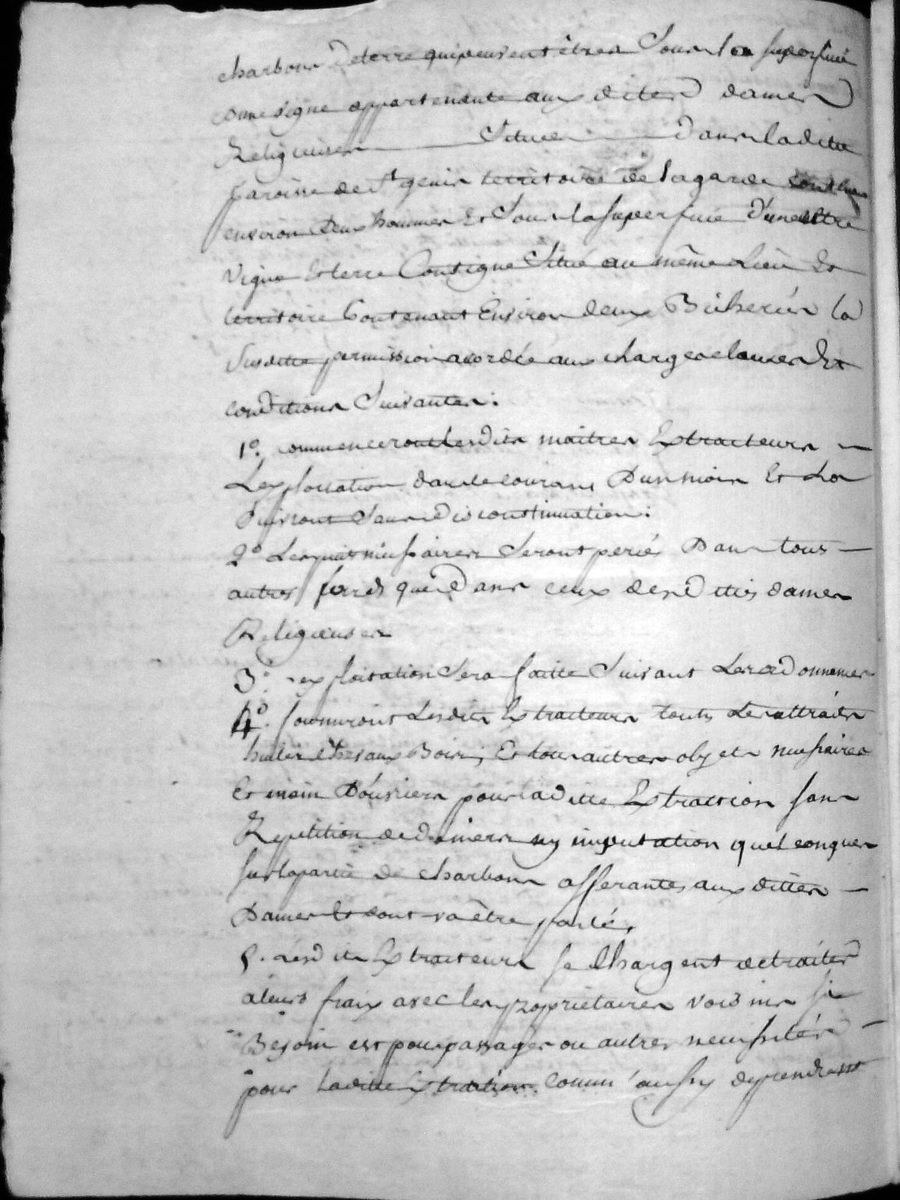 charbons de terre qui peuvent être Sous la superficie
vigne appartenante aux dittes dames
Religieuses Situé dans ladite
paroisse de St genis territoire de lagarde
environ Deux hommes Et Sous la superficie d'une autre
vigne Et terre Contigue Situé au même Lieu Et
territoire Contenant Environ deux Bicherées la
Susditte permission acordée aux charges clauses Et
conditions Suivantes:
1°. commenceront lesdits maitres Extracteurs
Lexploitation dans le courant D'un mois Et La
Suivront Sans discontinuation:
2° Les puits nécessaires Seront percés Dans tous
autres fonds que dans ceux desdittes dames
Religieuses
3° exploitation Sera faitte Suivant Les ordonnances
4°. fourniront Lesdits Extracteurs touts Les attraits
huiles Bois, Et tous autres objets necessaires
Et main D'ouvriers pour laditte Extraction sans
Repetition de deniers ny imputation quelconques
sur la partie de charbons afferantes aux dittes
Dames Et dont va être parlé,
5. Lesdits Extracteurs se Chargent de traiter
a leurs fraix avec les proprietaires voisins si
Besoin est pour passages ou autres necessités
pour laditte Extraction comm'aussy